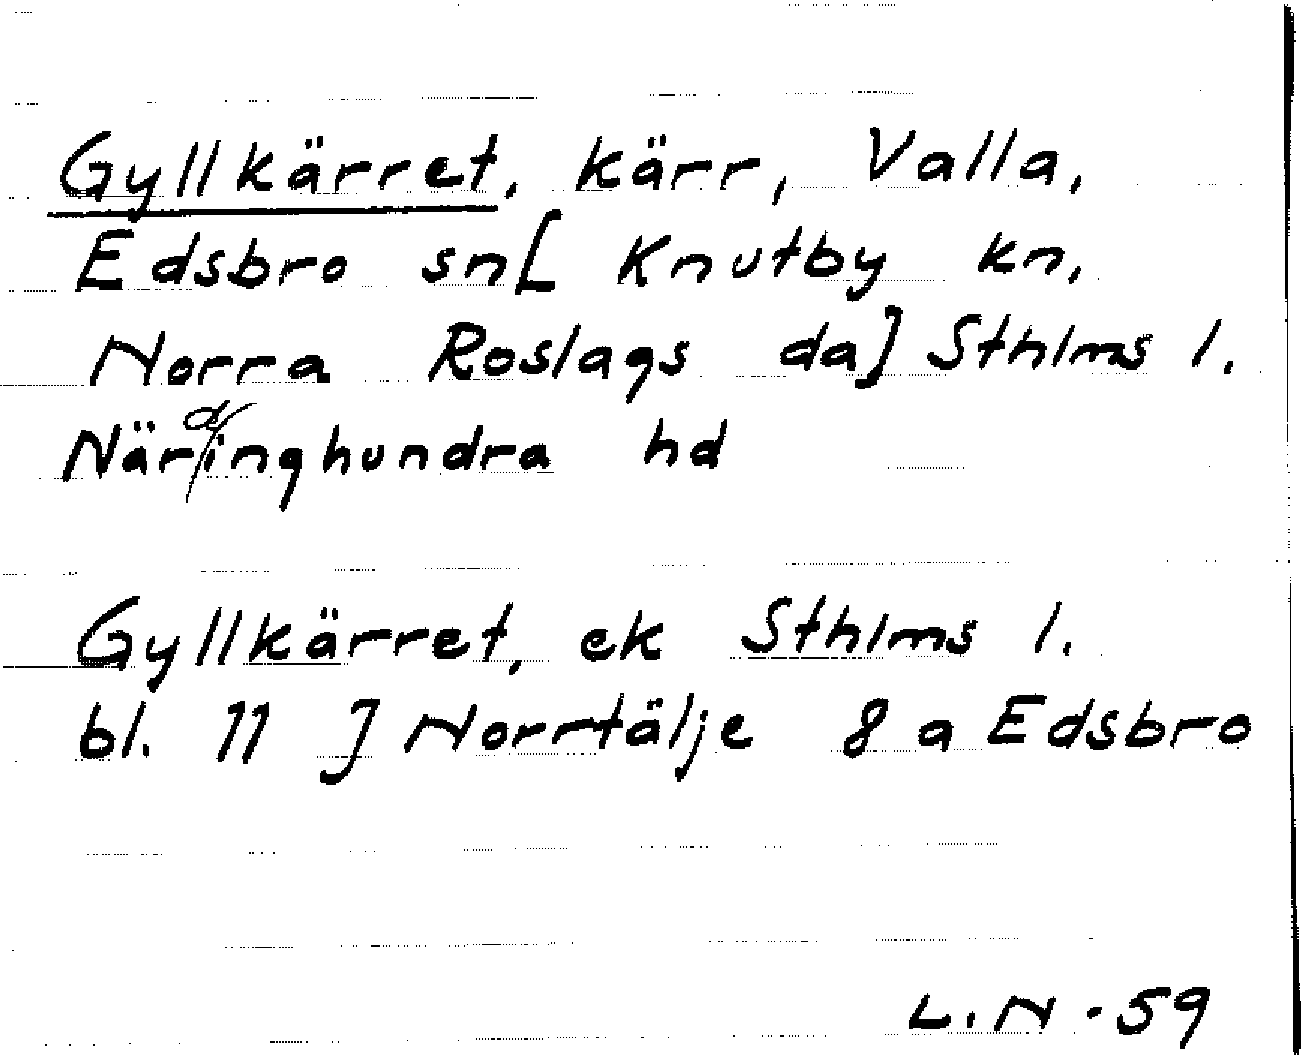 Gyllkärret, kärr, Valla,
Edsbro sn[ Knutby kn,
Norra Roslags da] Sthlms l.
Närdinghundra hd
Gyllkärret, ek Sthlms l.
bl. 11 J Norrtälje 8 a Edsbro
L.N - 59